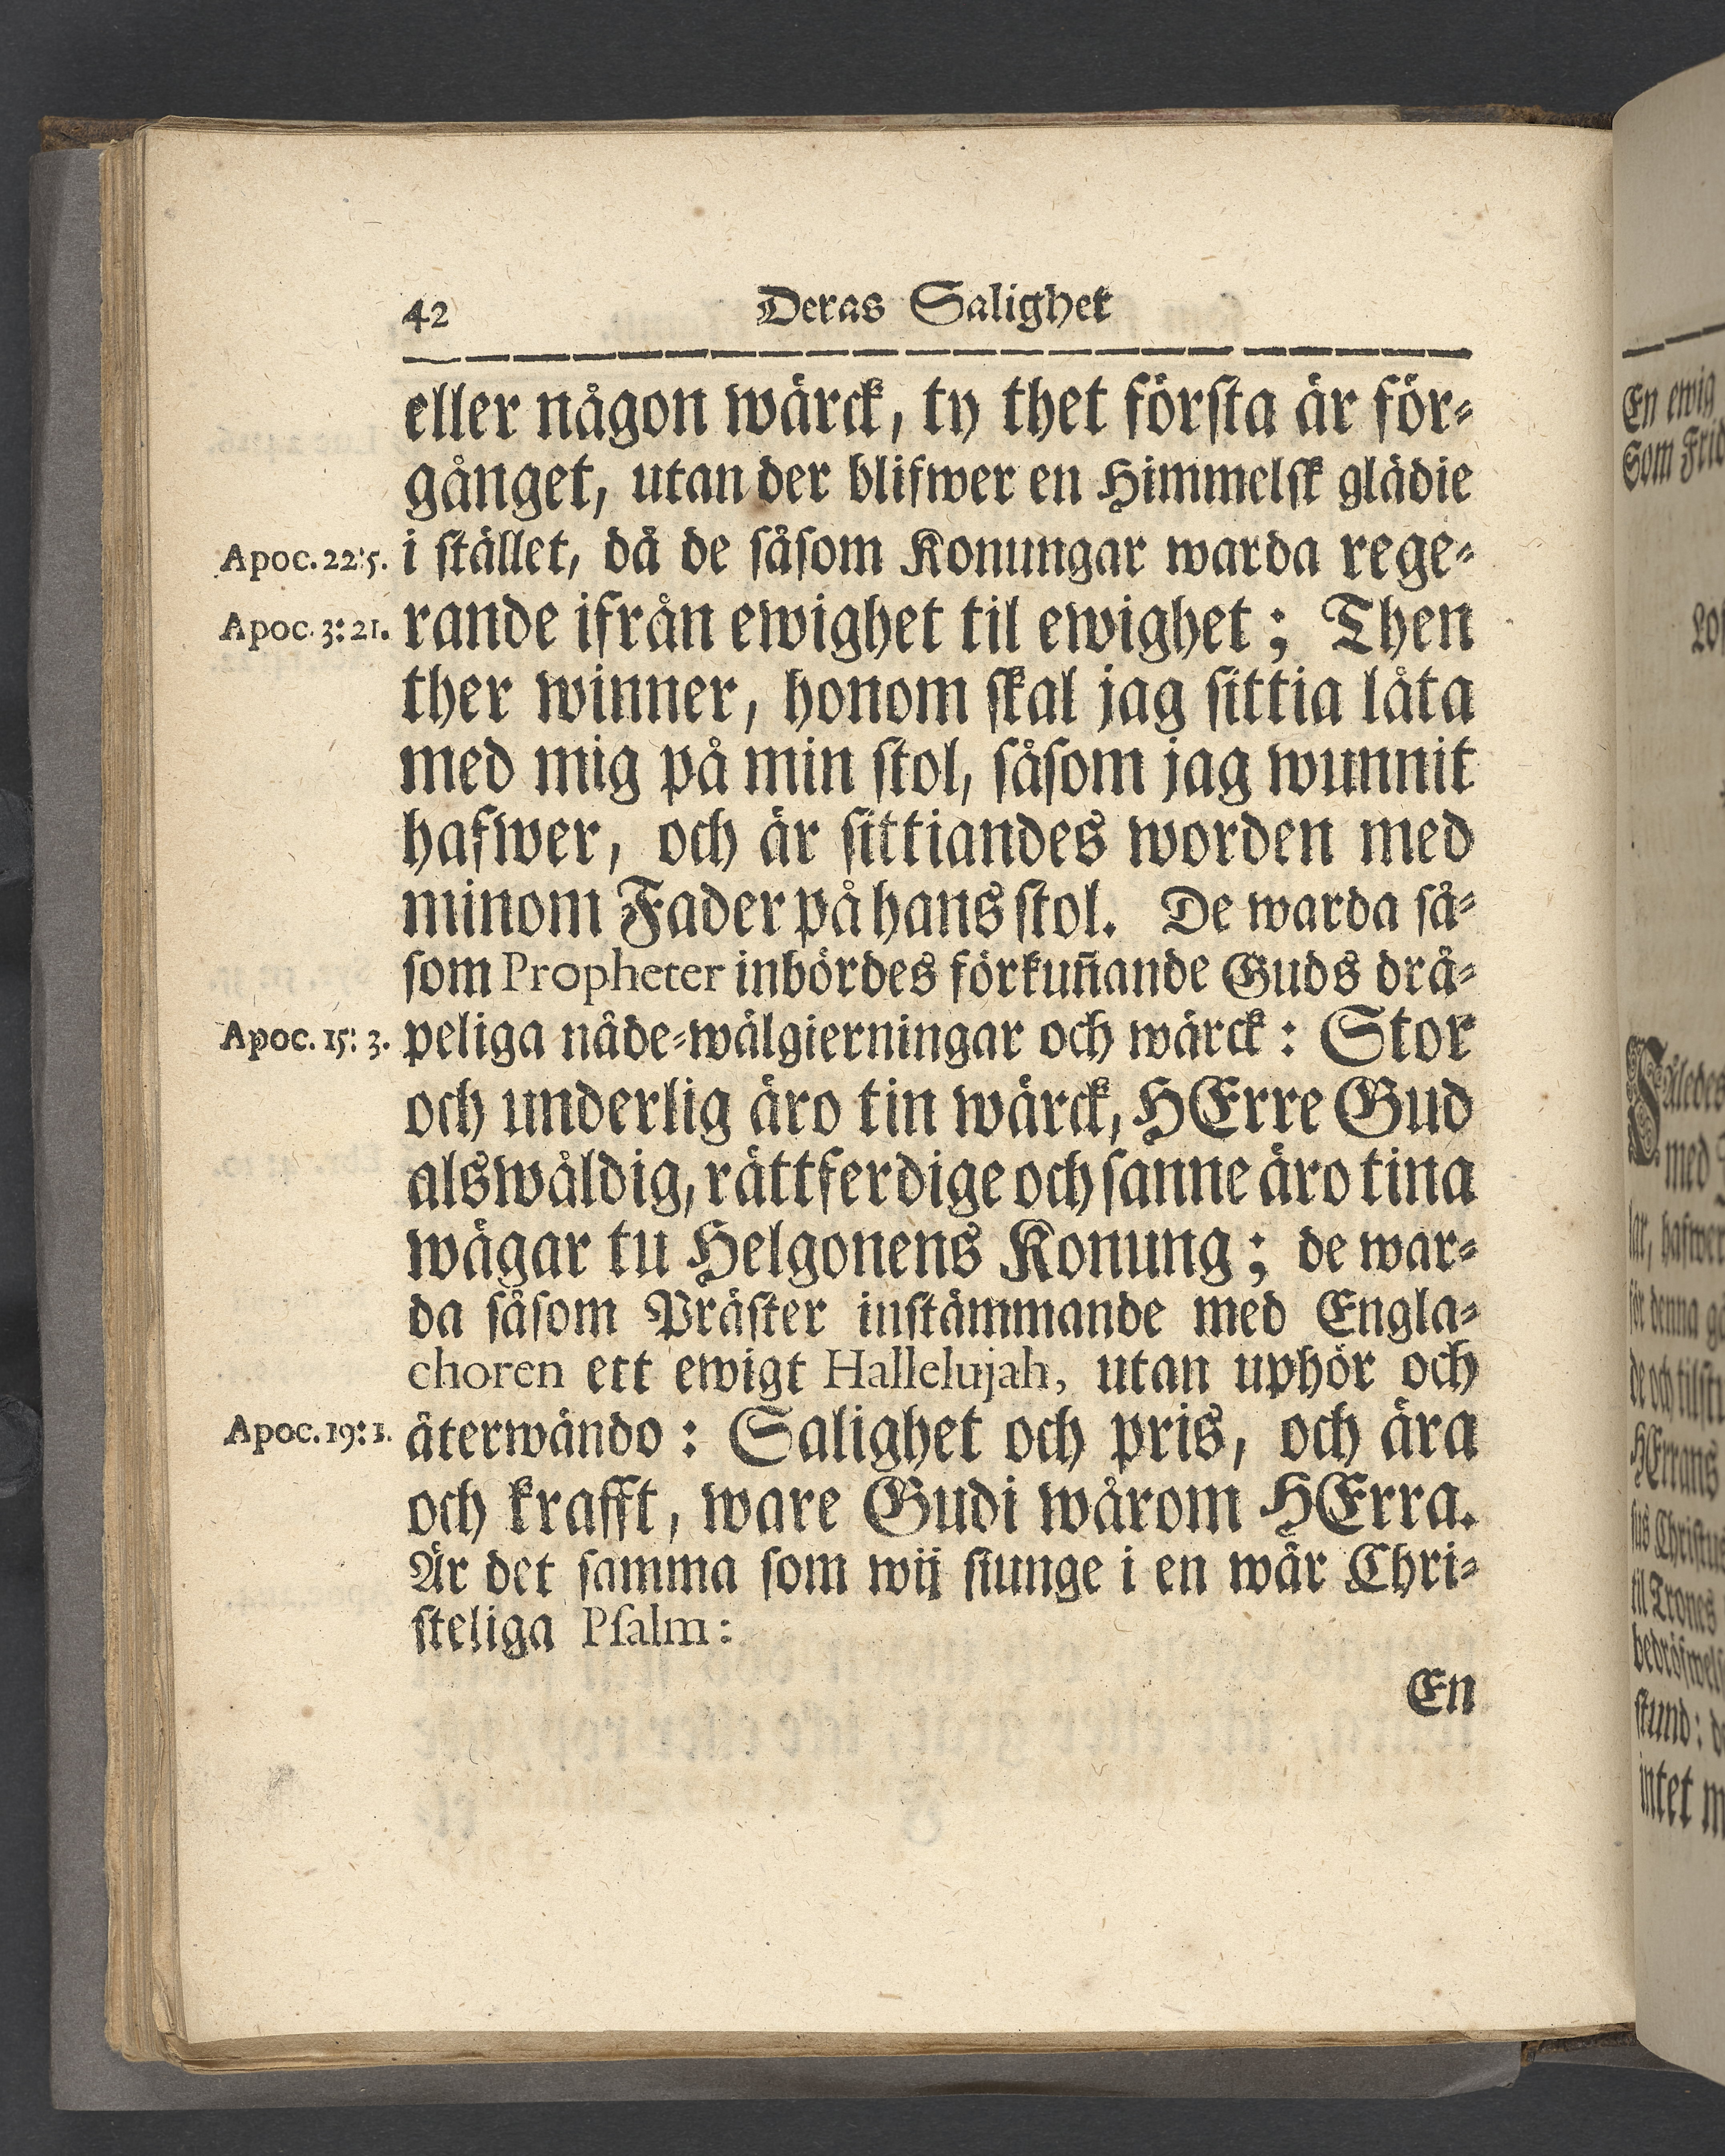 42 Deras Salighet
eller någon wärck, ty thet första är för-
gånget, utan der blifwer en Himmelsk glädie
Apoc. 22:5. i stället, då de såsom Konungar warda rege-
Apoc. 3:21. rande ifrån ewighet til ewighet; Then
ther winner, honom skal jag sittia låta
med mig på min stol, såsom jag wunnit
hafwer, och är sittiandes worden med
minom Fader på hans stol. De warda så-
som Propheter inbördes förkun̄ande Guds drå-
Apoc. 15: 3. peliga nåde-wälgierningar och wärck: Stor
och underlig äro tin wärck, HErre Gud
alswåldig, rättferdige och sanne äro tina
wägar tu Helgonens Konung; de war-
da såsom Präster instämmande med Engla-
choren ett ewigt Hallelujah, utan uphör och
Apoc. 19:1. återwändo: Salighet och pris, och ära
och krafft, ware Gudi wårom HErra.
Är det samma som wij siunge i en wår Chri-
steliga Psalm:
En
En ewig
Som Frid
med
lar, hafwer
för denna
HErrans
til Trones
stund:
intet